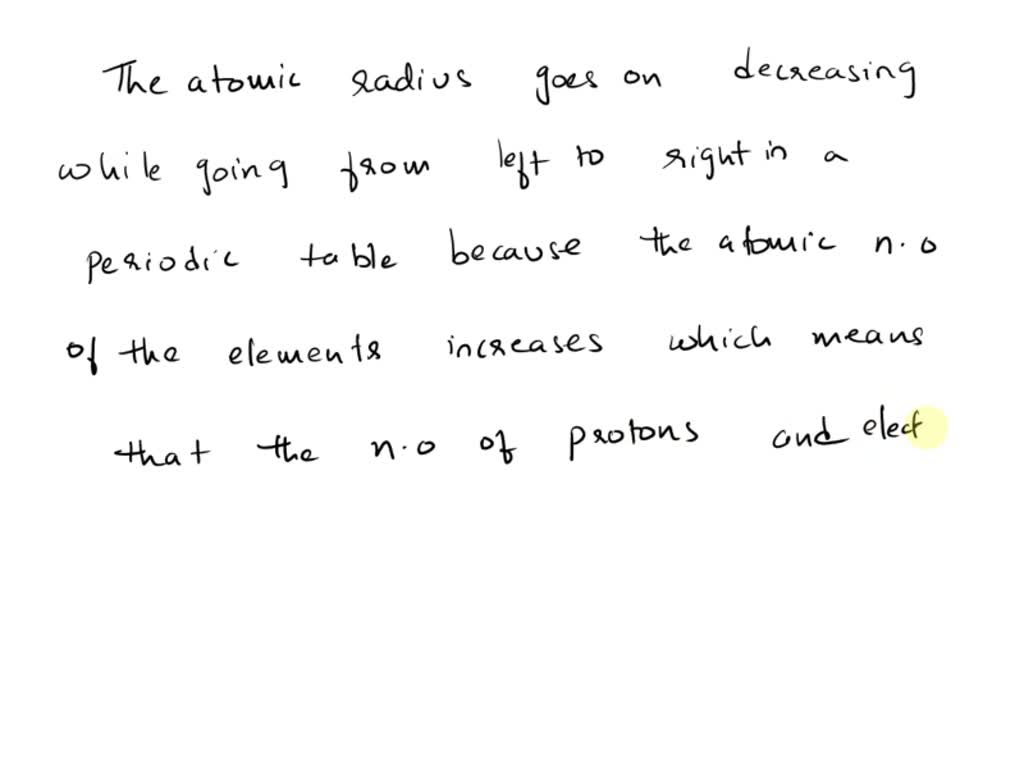 The atomic radius goes on decreasing
while going from left to right in a
periodic table because the atomic n.o
of the elements increases which means
that the n.o of protons and elect